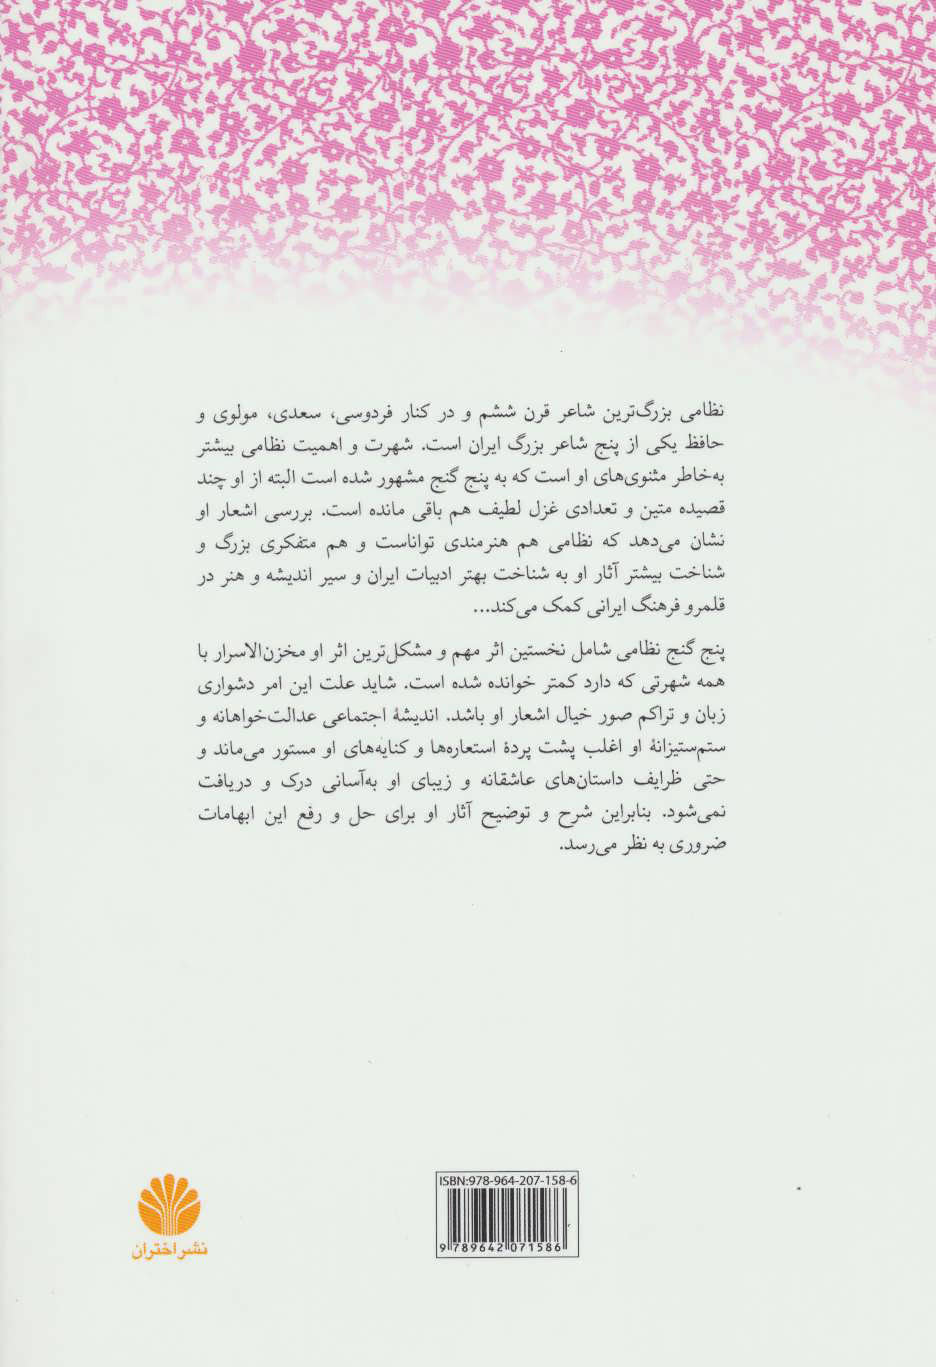 نظامی بزرگ‌ترین شاعر قرن ششم و در کنار فردوسی، سعدی، مولوی و
حافظ یکی از پنج شاعر بزرگ ایران است. شهرت و اهمیت نظامی بیشتر
به‌خاطر مثنوی‌های او است که به پنج گنج مشهور شده است البته از او چند
قصیده متین و تعدادی غزل لطیف هم باقی مانده است. بررسی اشعار او
نشان می‌دهد که نظامی هم هنرمندی تواناست و هم متفکری بزرگ و
شناخت بیشتر آثار او به شناخت بهتر ادبیات ایران و سیر اندیشه و هنر در
قلمرو فرهنگ ایرانی کمک می‌کند...
پنج گنج نظامی شامل نخستین اثر مهم و مشکل‌ترین اثر او مخزن‌الاسرار با
همه شهرتی که دارد کمتر خوانده شده است. شاید علت این امر دشواری
زبان و تراکم صور خیال اشعار او باشد. اندیشهٔ اجتماعی عدالت‌خواهانه و
ستم‌ستیزانهٔ او اغلب پشت پردهٔ استعاره‌ها و کنایه‌های او مستور می‌ماند و
حتی ظرایف داستان‌های عاشقانه و زیبای او به‌آسانی درک و دریافت
نمی‌شود. بنابراین شرح و توضیح آثار او برای حل و رفع این ابهامات
ضروری به نظر می‌رسد.
ISBN:978-964-207-158-6
9 789642 071586
نشر اختران